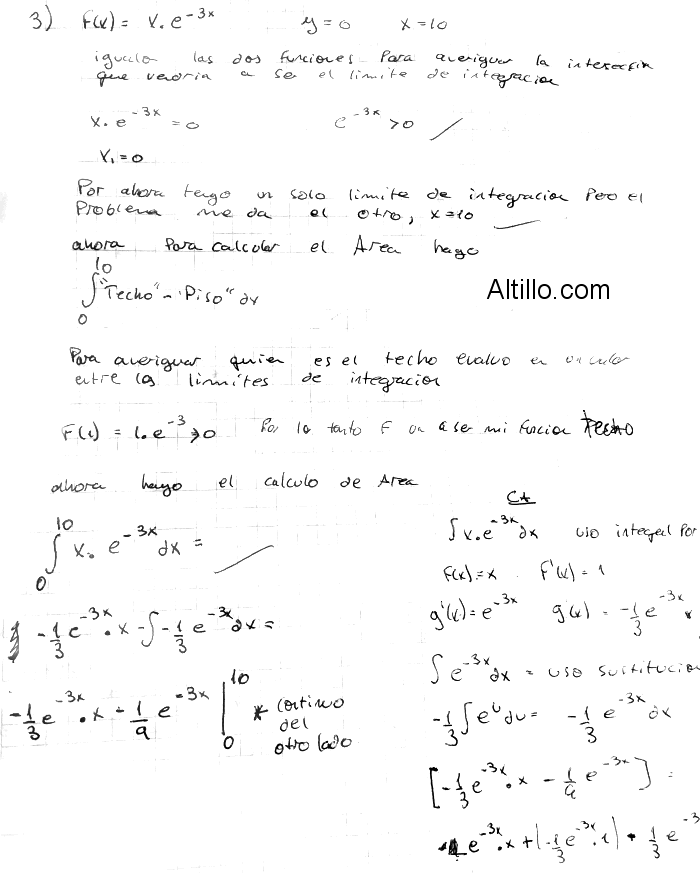 3) F(x) = x.e^-3x y=0 x=10
igualo las dos funciones para averiguar la
que vendria a ser el limite de integracion
x.e^-3x = 0 e^-3x >0
x₁=0
Por ahora tengo un solo limite de integracion pero el
Problema me da el otro, x=10
ahora para calcular el Area hago
10
∫"Techo" - "Piso" dx
0
Altillo.com
Para averiguar quien es el techo evaluo en un valor
entre los limites de integracion
F(1) = 1.e^-3 >0 Por lo tanto F va a ser mi funcion techo
ahora hago el calculo de Area
10
∫ x. e^-3x dx =
0
-1/3 e^-3x . x - ∫ -1/3 e^-3x dx =
-1/3 e^-3x . x - 1/9 e^-3x | 10
0
* continuo
del
otro lado
CA
∫x.e^-3x dx uso integral por
F(x)=x F'(x)=1
g'(x)=e^-3x g(x) = -1/3 e^-3x
∫e^-3x dx = uso sustitucion
-1/3 ∫e^u du = -1/3 e^-3x dx
[-1/3 e^-3x . x - 1/9 e^-3x] =
e^-3x . x + (-1/3 e^-3x . 1) + 1/3 e^-3